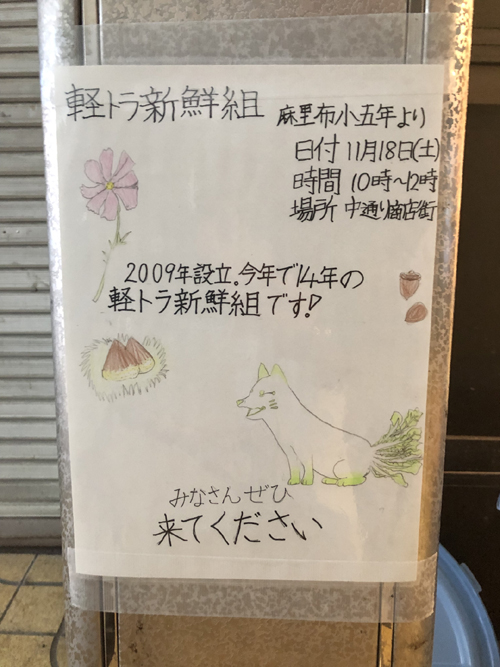 軽トラ新鮮組
麻里布小五年より
日付 11月18日(土)
時間 10時~12時
場所 中通り商店街
2009年設立。今年で14年の
軽トラ新鮮組です!
みなさん ぜひ
来てください